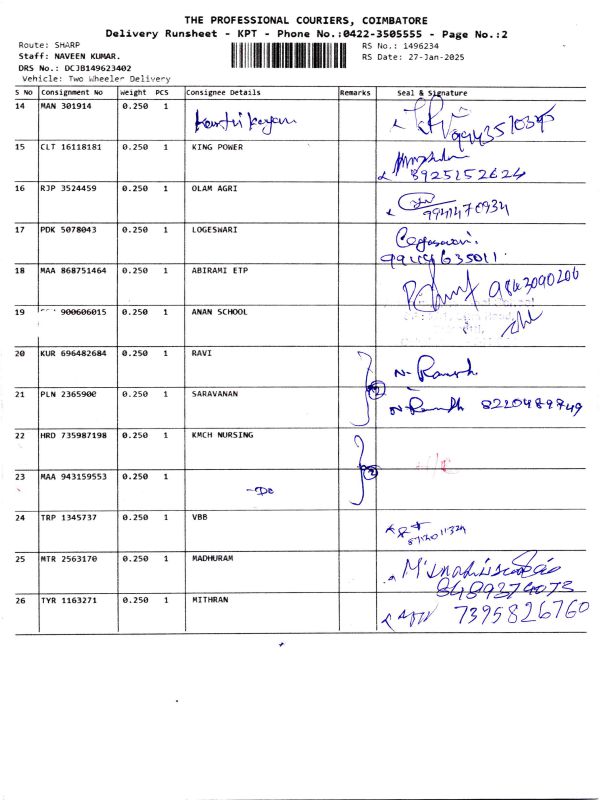 THE PROFESSIONAL COURIERS, COIMBATORE
Delivery Runsheet - KPT - Phone No.:0422-3505555 - Page No.:2
Route: SHARP RS No.: 1496234
Staff: NAVEEN KUMAR. RS Date: 27-Jan-2025
DRS No.: DCJB149623402
Vehicle: Two Wheeler Delivery
S No Consignment No Weight PCS Consignee Details Remarks Seal & Signature
14 MAN 301914 0.250 1 Karthikeyan
15 CLT 16118181 0.250 1 KING POWER
8925152624
16 RJP 3524459 0.250 1 OLAM AGRI
17 PDK 5078043 0.250 1 LOGESWARI
18 MAA 868751464 0.250 1 ABIRAMI ETP 9843090206
19 900606015 0.250 1 ANAN SCHOOL
20 KUR 696482684 0.250 1 RAVI N. Ramesh
21 PLN 2365900 0.250 1 SARAVANAN 2 8220489749
22 HRD 735987198 0.250 1 KMCH NURSING
23 MAA 943159553 0.250 1 -Do 2
24 TRP 1345737 0.250 1 VBB
25 MTR 2563170 0.250 1 MADHURAM
8489374073
26 TYR 1163271 0.250 1 MITHRAN 7395826760